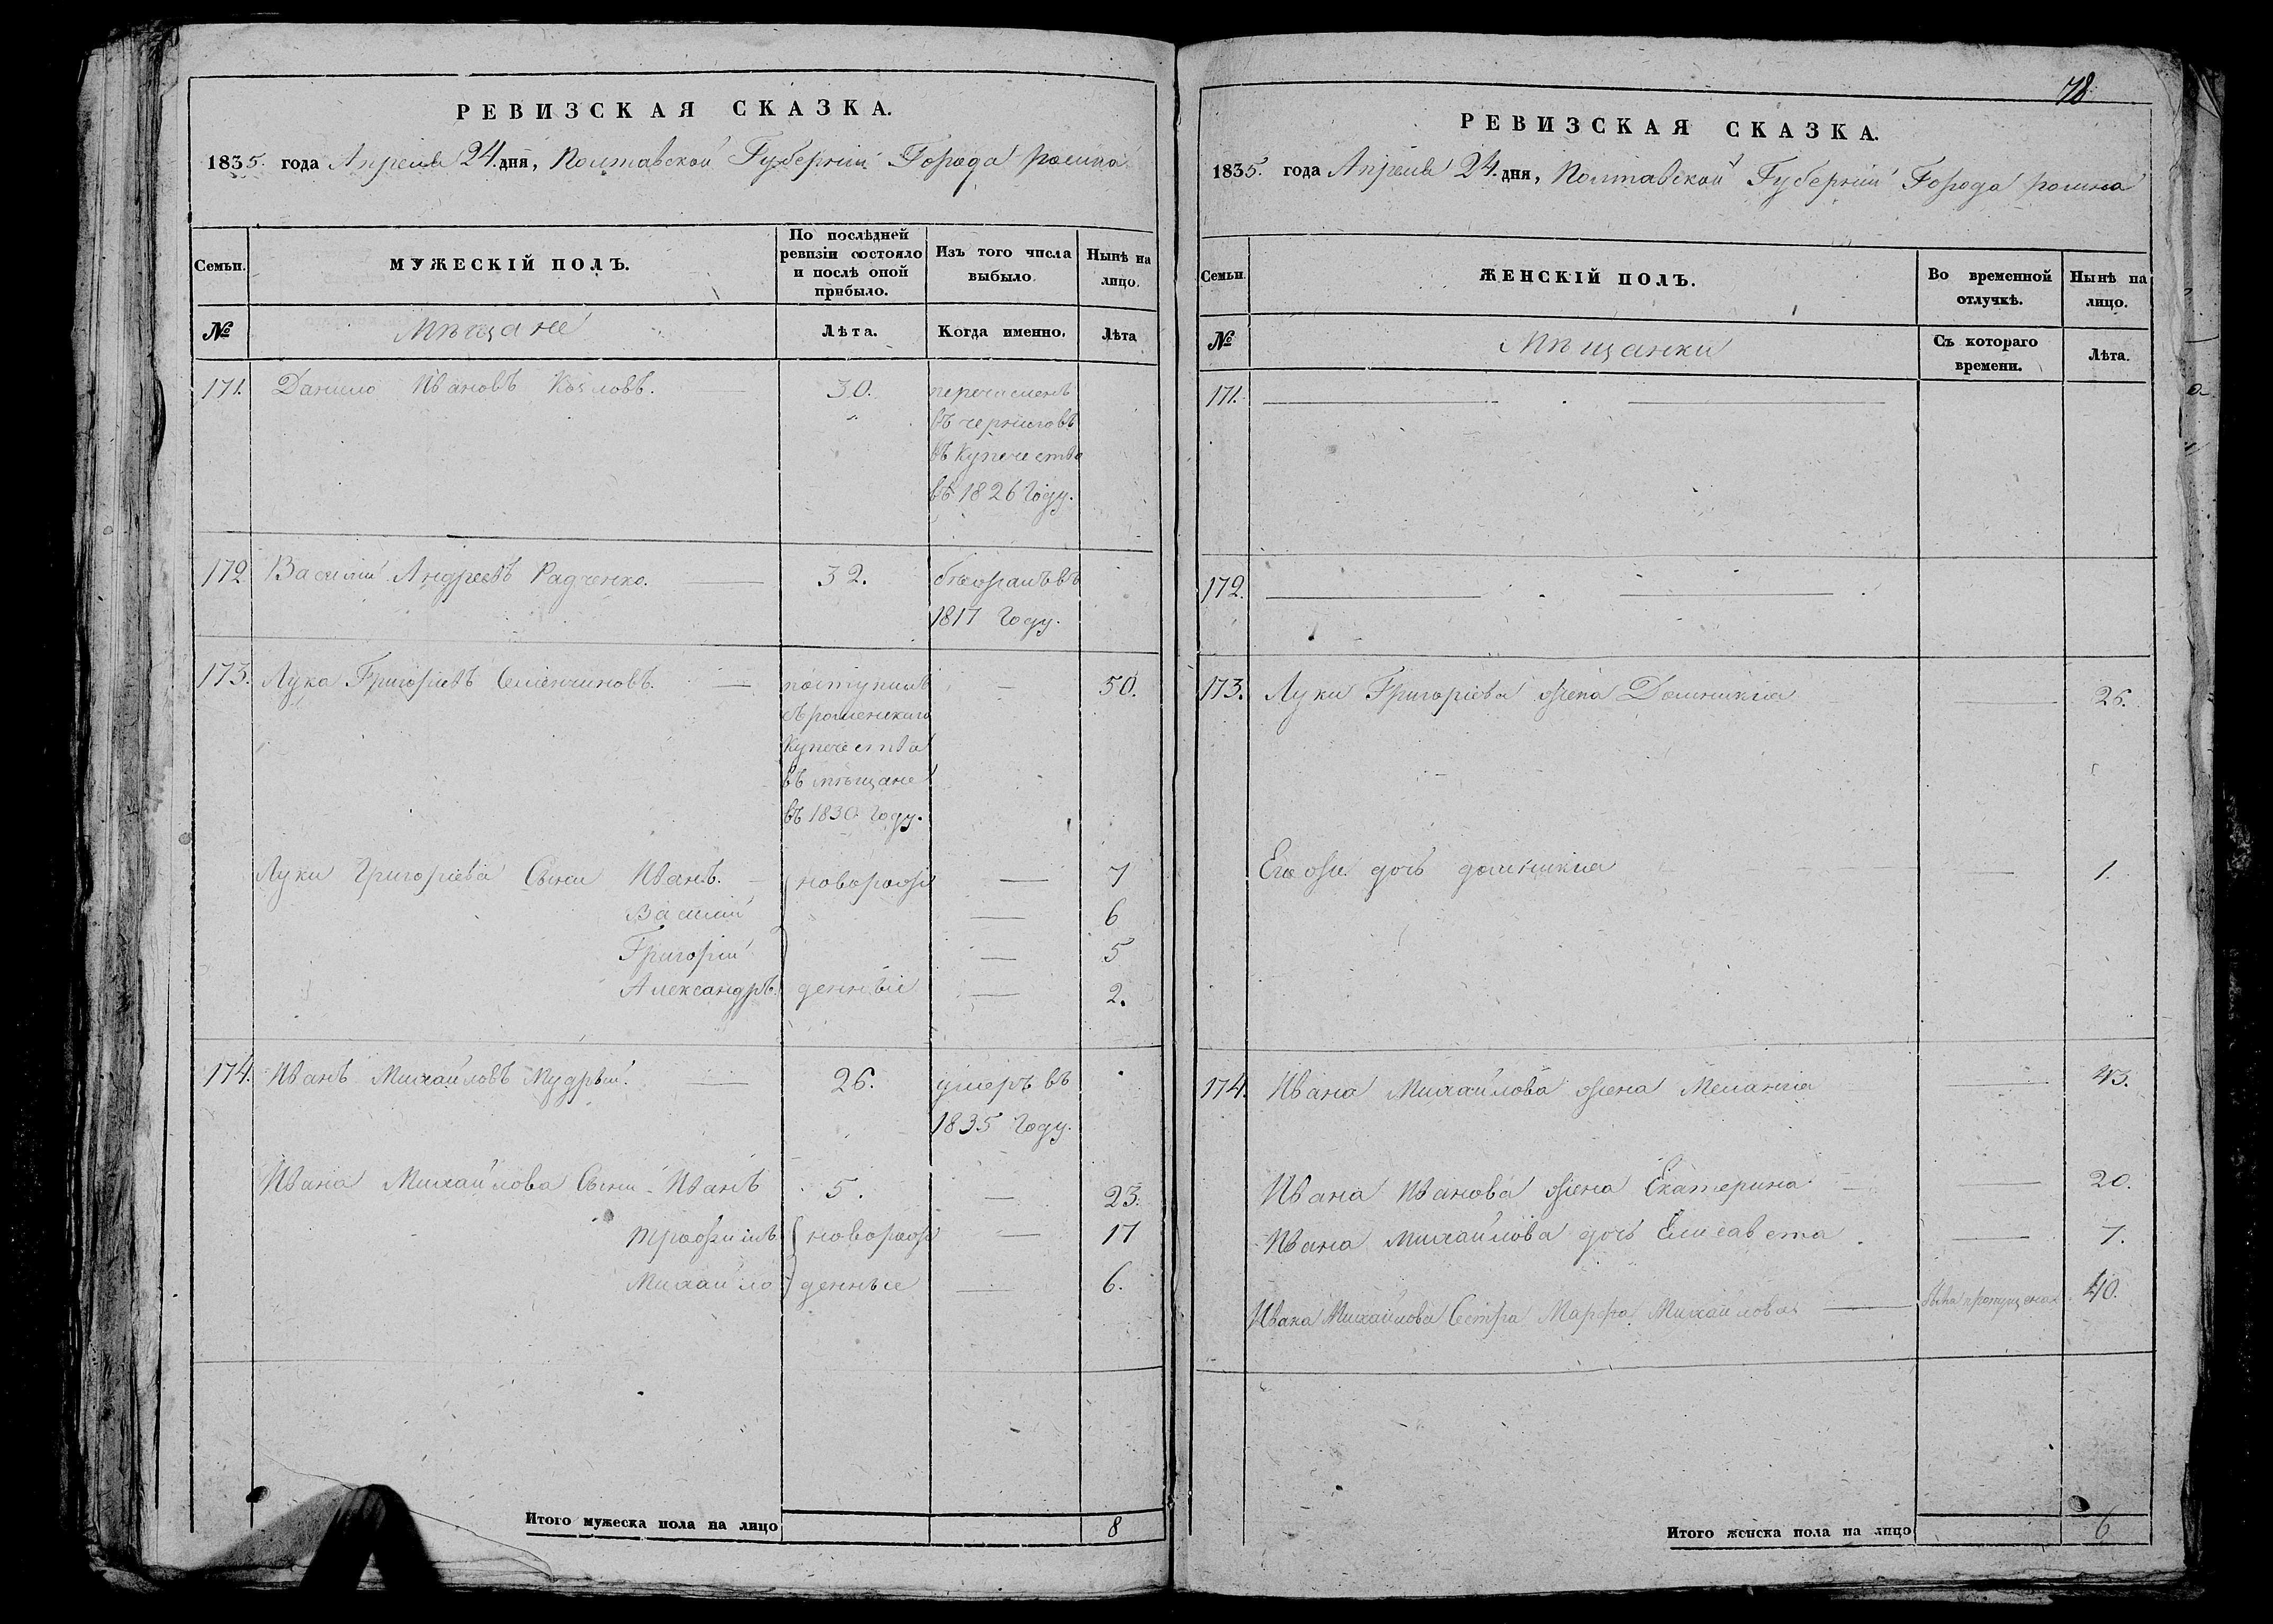 РЕВИЗСКАЯ СКАЗКА.
1835. года Апреля 24. дня, Полтавской Губернии Города ромна
Семьи.
МУЖЕСКІЙ ПОЛЪ.
По послѣдней ревизіи состояло и послѣ оной прибыло.
Изъ того числа выбыло.
Нынѣ на лицо.
№
Мѣщане
Лѣта.
Когда именно.
Лѣта
171. Данило Ивановъ Козловъ. 30. перечисленъ
въ черниговъ
въ купечество
въ 1826 Году.
172 Василий Андреевъ Радченко. 32. бѣжалъ въ
1817 Году.
173. Лука Григорьевъ поступилъ 50.
съ роменскаго
купечества
въ мѣщане
въ 1830 Году.
Луки Григорьева Сыни Иванъ. новорож 7
Василий 6
Григорий 5
Александръ. денные 2.
174. Иванъ Михайловъ Мудрый. 26. умеръ въ
1835 Году.
Ивана Михайлова Сыни Иванъ 5. 23.
Трофимъ новорож 17
Михайло денные 6.
Итого мужеска пола на лицо 8
78
РЕВИЗСКАЯ СКАЗКА.
1835. года Апреля 24. дня, Полтавской Губернии Города ромна
Семьи.
ЖЕНСКІЙ ПОЛЪ.
Во временной отлучкѣ.
Нынѣ на лицо.
№
Мѣщанки
Съ котораго времени.
Лѣта.
171.
172.
173. Луки Григорьева жена Домникия 26.
Его же дочь домникия 1.
174. Ивана Михайлова жена Мелания 43.
Ивана Иванова жена Екатерина 20.
Ивана Михайлова дочь Елисавета 7.
Ивана Михайлова Сестра Марфа Михайлова была пропущена 40.
Итого женска пола на лицо 6